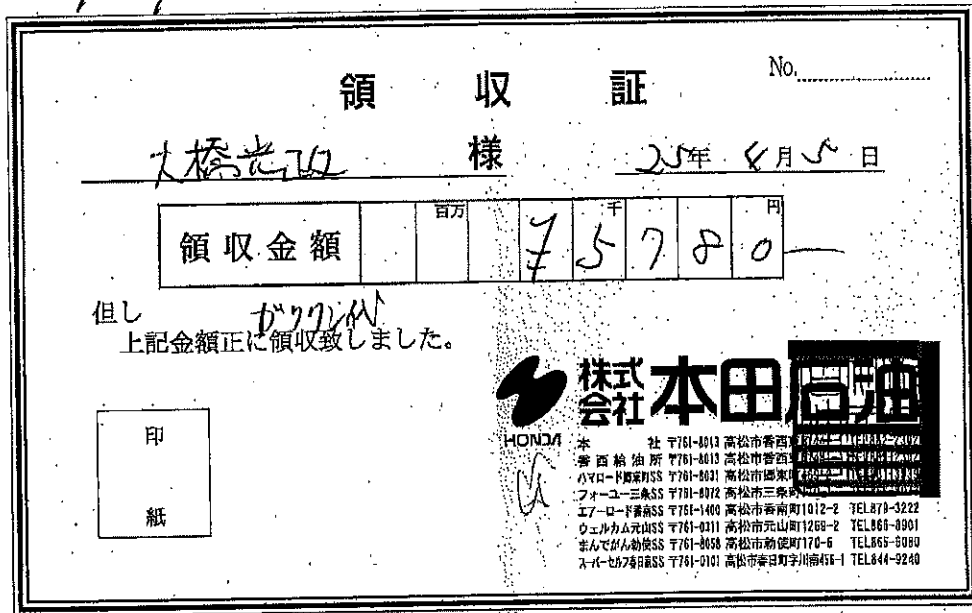 領収証
No.
大橋光政 様
25年 4月 5日
百万 千 円
領収金額 ¥5780-
但し ガソリン代
上記金額正に領収致しました。
印
紙
株式会社 本田石油
HONDA
本 社 〒761-8013 高松市香西
香西給油所 〒761-8013 高松市香西
ハマロード郷東町SS 〒761-8031 高松市郷東町
フォーユー三条SS 〒761-8072 高松市三条町
エアーロード香南SS 〒761-1400 高松市香南町1012-2 TEL879-3222
ウェルカム元山SS 〒761-0311 高松市元山町1269-2 TEL866-8901
まんでがん勅使SS 〒761-8058 高松市勅使町170-6 TEL866-8080
スーパーセルフ春日南SS 〒761-0101 高松市春日町字川南456-1 TEL844-9240